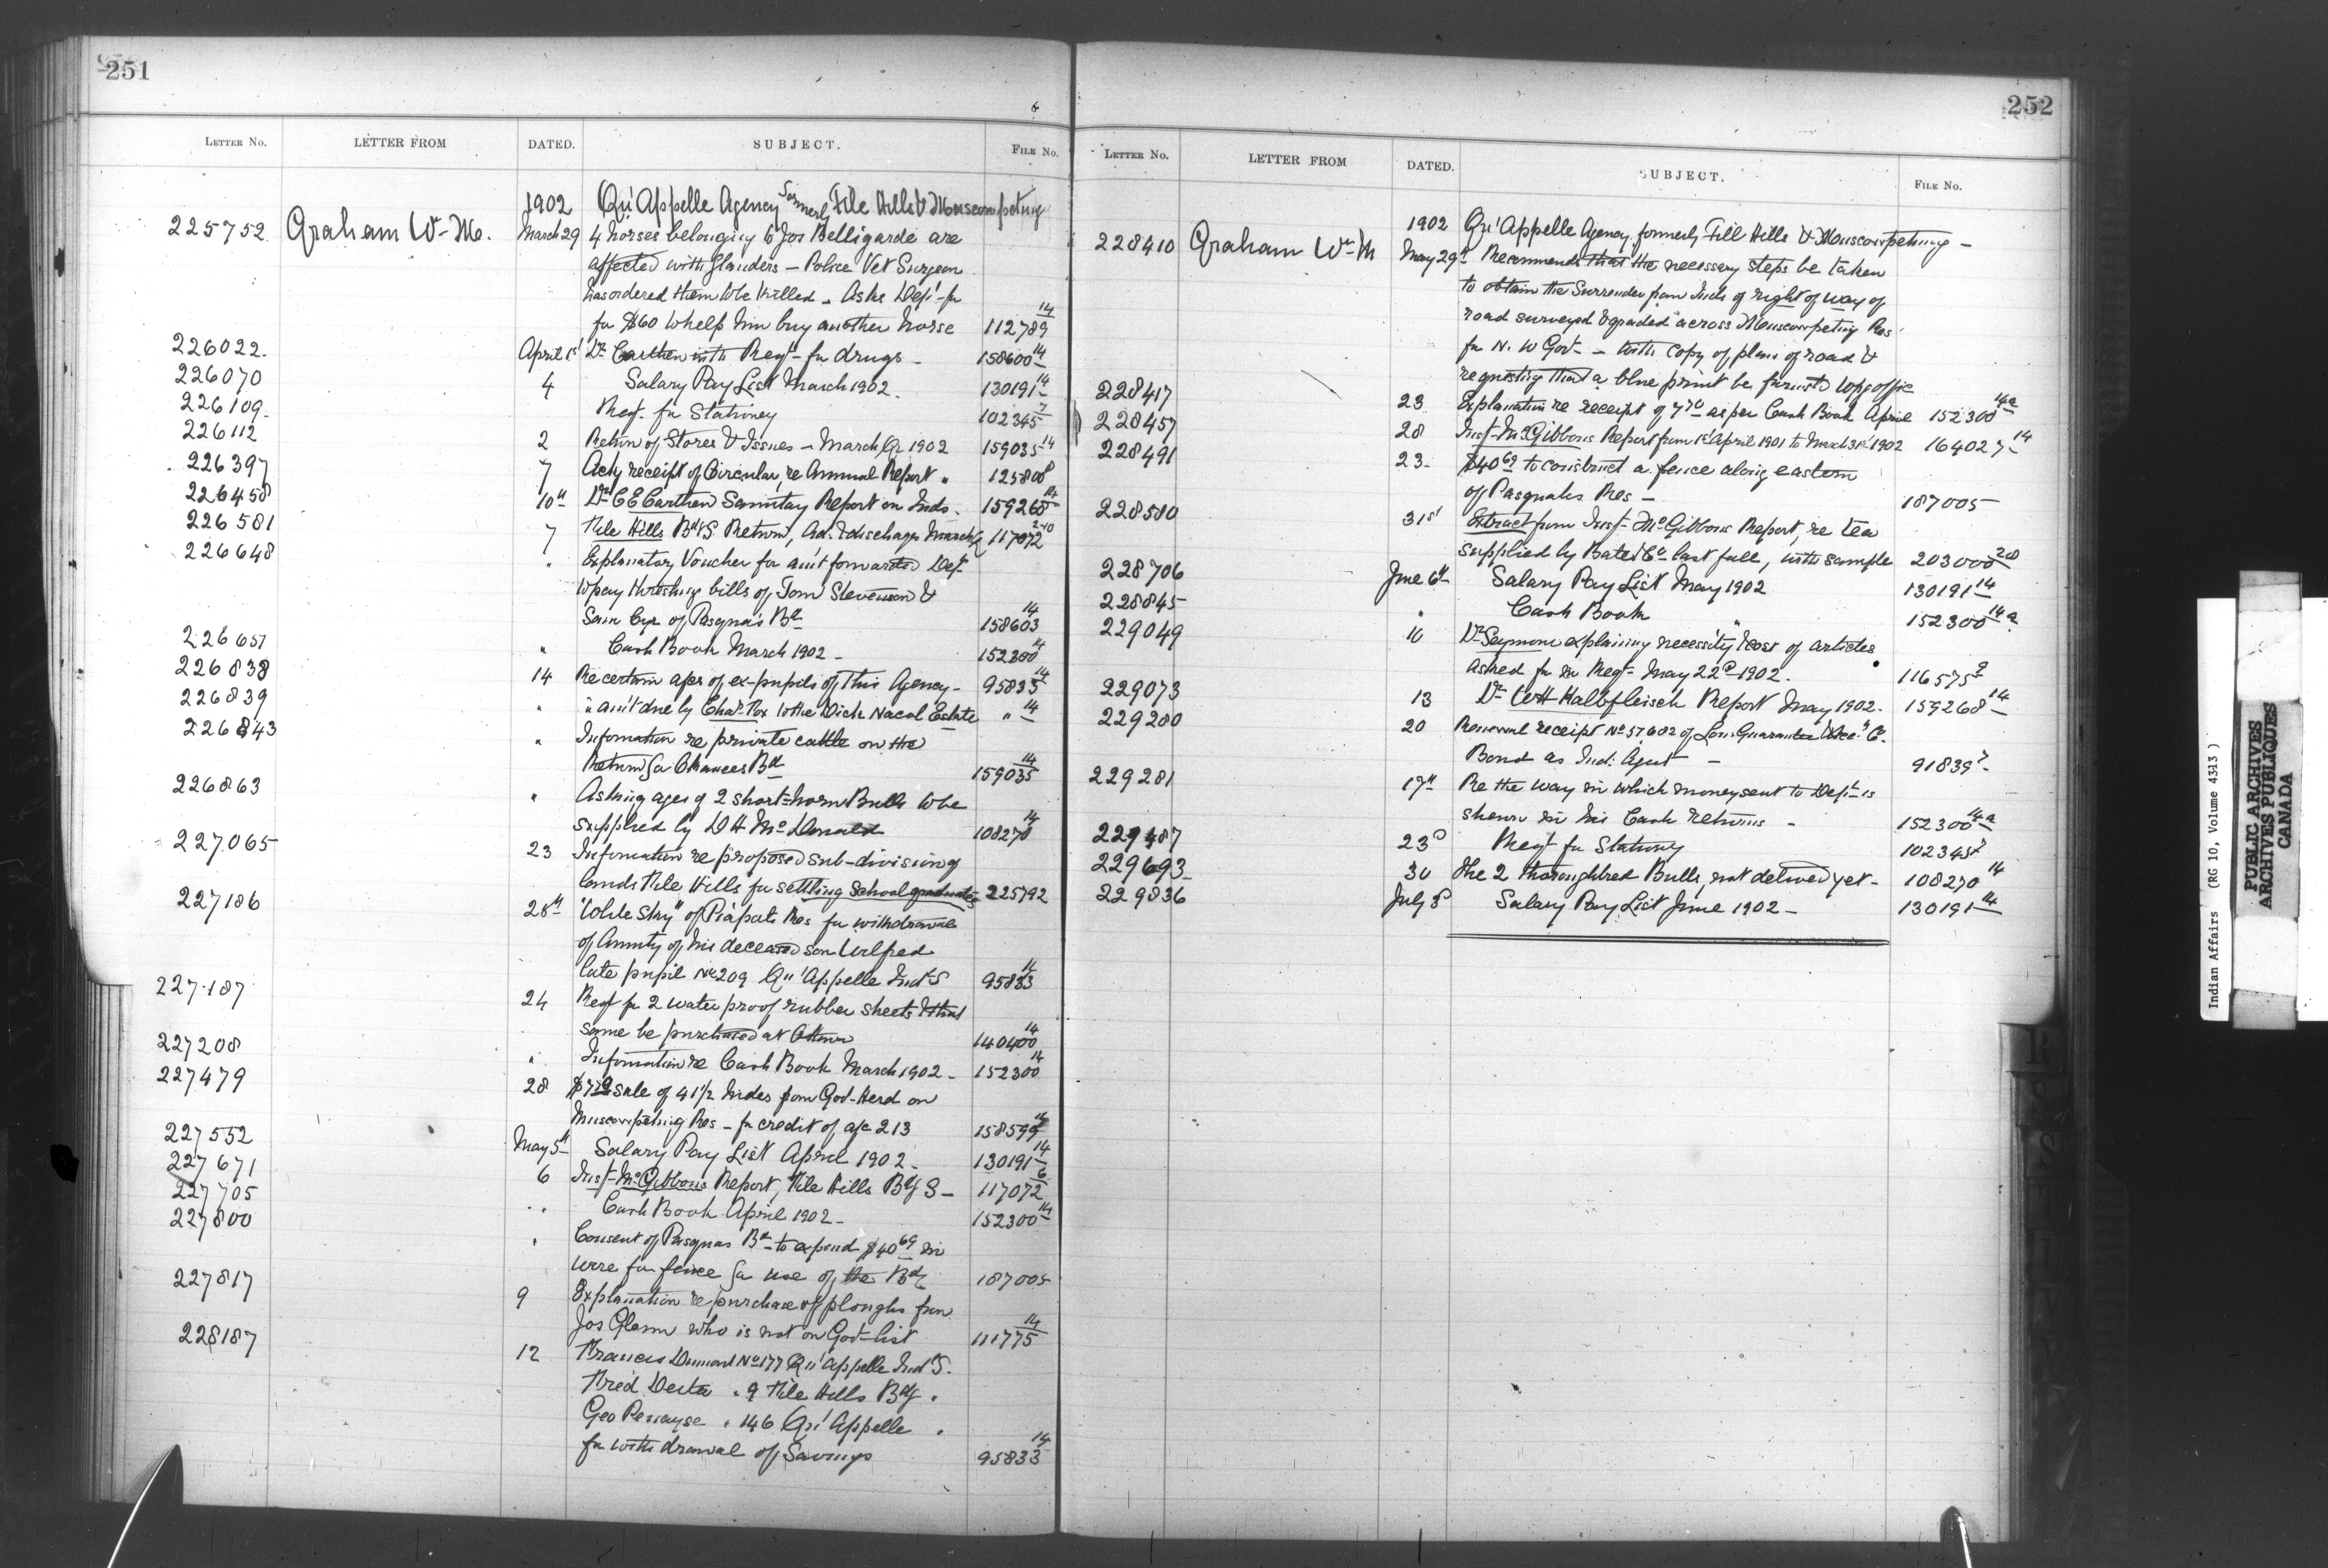 251
LETTER NO. LETTER FROM DATED. SUBJECT. FILE No.
1902 Qu'Appelle Agency formerly File Hills & Muscowpetung
225752 Graham Wm M. March 29 4 horses belonging to Jos Belligarde are
affected with glanders — Police Vet Surgeon
has ordered them to be killed. Asks Dept
for $60 to help him buy another horse 112789 14
226022 April 1st Dr Carthew with Reqt for drugs 158600 14
226070 4 Salary Pay List March 1902. 130191 14
226109 Reqt. for Stationery 102345 7
226112 2 Return of Stores & Issues — March Qr 1902 159035 14
226397 7 Ackg receipt of Circular, re Annual Report " 125800
226458 10th Dr C E Carthew Sanitary Report on Inds. 159268 14
226581 7 File Hills Bdg S. Return, Ad. & discharge March Qr 117072
226648 " Explanatory Voucher for amt forwarded Dept
to pay threshing bills of Tom Stevenson &
Sam Cyr of Pasqua's Bd 158603 14
226651 " Cash Book March 1902 — 152300 14
226838 14 Re certain apps of ex-pupils of this Agency — 95833 14
226839 " " amt due by to the Dick Nacol Estate " 14
226843 " Information re private cattle on the
Return 159035 14
226863 " Asking ages of 2 short-horn Bulls to be
supplied by D H McDonald 108270 14
227065 23 Information re proposed sub-division of
lands File Hills for settling School graduates 225792
227186 28th "White Sky" of Piapots Res for withdrawal
of Annuity of his deceased son Wilfred
late pupil No 209 Qu'Appelle Ind S 95833 14
227187 24 Reqt for 2 water proof rubber sheets & that
same be purchased at Ottawa 140400 14
227208 " Information re Cash Book March 1902 — 152300 14
227479 28 sale of 41½ hides from Govt Herd on
Muscowpetung Res — for credit of a/c 213 158599 14
227552 May 5th Salary Pay List April 1902. 130191 14
227671 6 Inst McGibbons Report, File Hills Bdg S — 117072 6
227705 " Cash Book April 1902 — 152300 14
227800 " Consent of Pasquas Bd to expend $40 69 in
wire for fence for use of the Bd 187005
227817 9 Explanation re purchase of ploughs from
Jos Glenn who is not on Govt list 111775 14
228187 12 Francis Dumont No 177 Qu'Appelle Ind S.
Fred Deita " 9 File Hills Bdg "
Geo " 146 Qu'Appelle "
for withdrawal of Savings 95833 14
252
LETTER NO. LETTER FROM DATED. SUBJECT. FILE No.
1902 Qu'Appelle Agency formerly File Hills & Muscowpetung —
228410 Graham Wm M May 29th Recommends that the necessary steps be taken
to obtain the Surrender from Inds of right of way of
road surveyed & graded across Muscowpetung Res
for N. W Govt — with copy of plan of road &
requesting that a blue print be
228417 23 Explanation re receipt of as per Cash Book April 152300 14a
228457 28 Inst McGibbons Report from 1st April 1901 to March 31st 1902 164027 14
228491 23 $40 69 to construct a fence along eastern
of Pasquahs Res — 187005
228580 31st Extract from Inst McGibbons Report, re tea
supplied by Bate & Co last fall, with sample 203000 20
228706 June 6th Salary Pay List May 1902 130191 14
228845 " Cash Book " 152300 14a
229049 10 Dr Seymour explaining necessity & cost of articles
asked for in Reqt May 22d 1902. 116575 9
229073 13 Dr W H Kalbfleisch Report May 1902. 159268 14
229280 20 Renewal receipt No 57602 of Lon: Guarantee & Acc: Co.
Bond as Ind: Agent — 91839 7
229281 17th Re the way in which money sent to Dept is
shewn in his Cash returns — 152300 14a
229487 23d Reqt for Stationery 102345 7
229693 30 The 2 thoroughbred Bulls, not delivered yet — 108270 14
229836 July 3 Salary Pay List June 1902 — 130191 14
Indian Affairs (RG 10, Volume 4313)
PUBLIC ARCHIVES
ARCHIVES PUBLIQUES
CANADA